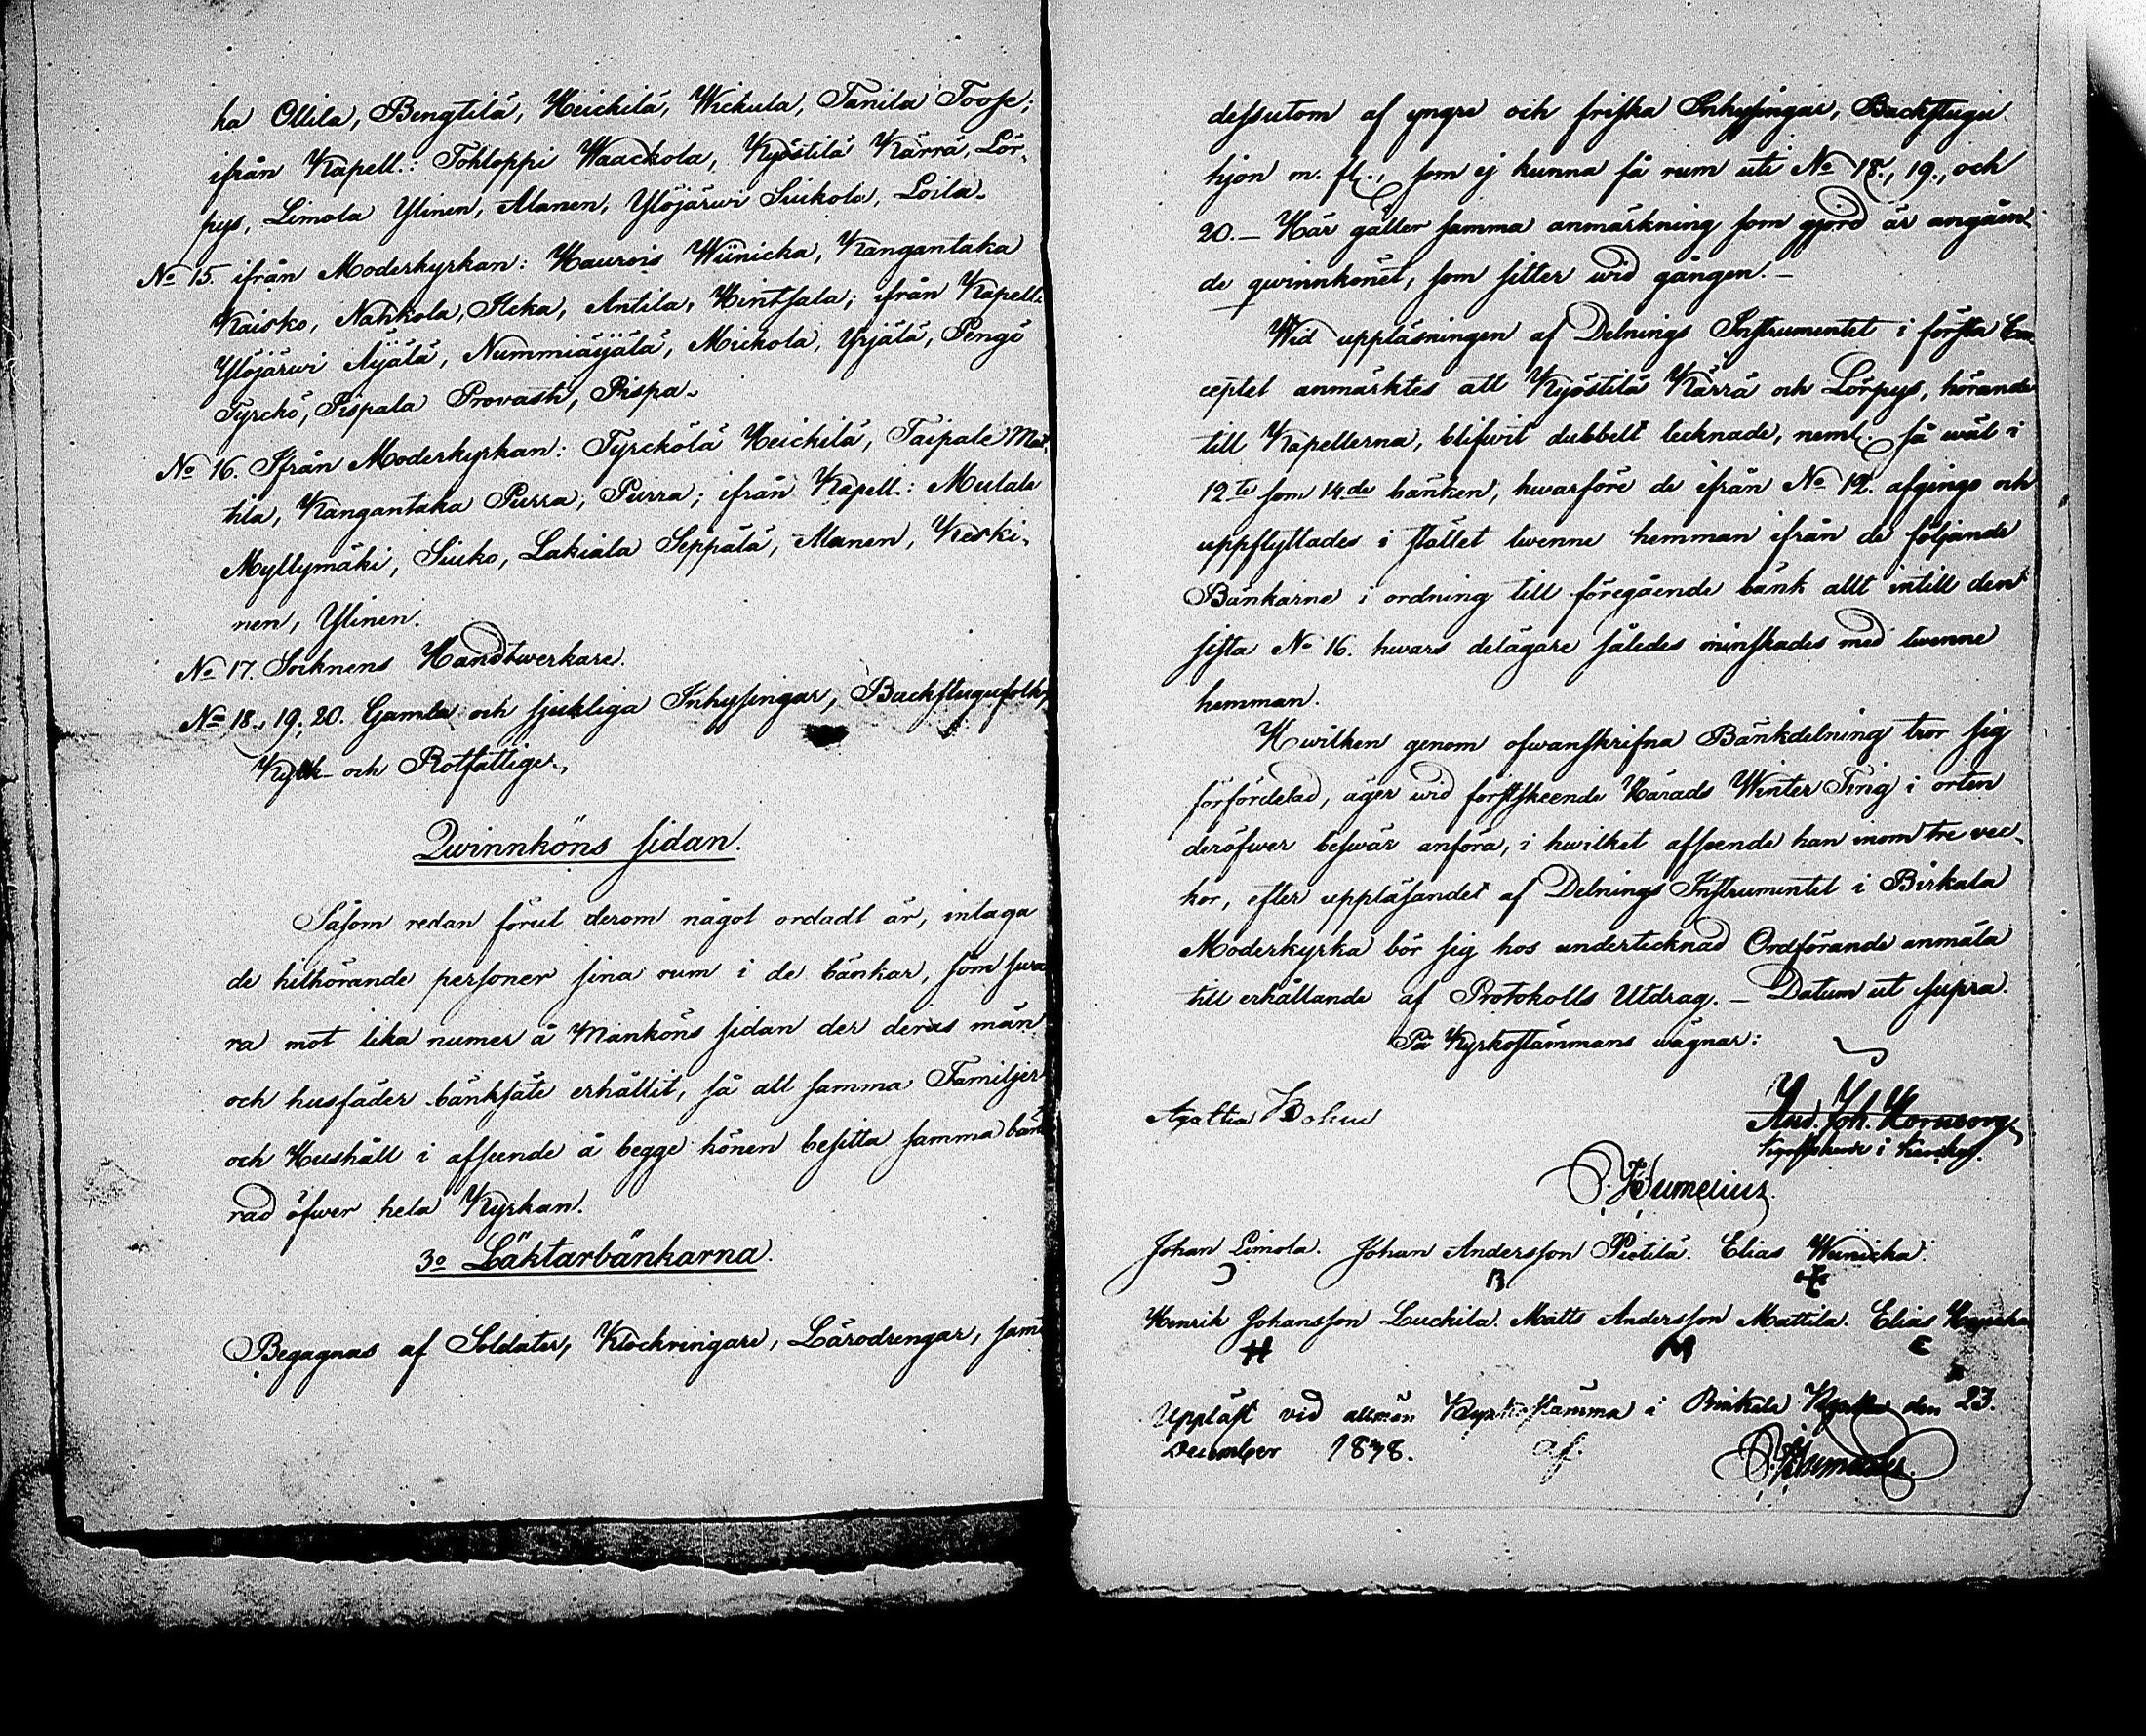 ka Ollila, Bengtilä, Heickilä, Wickula, Tanila Toose;
ifrån Kapell.: Tohloppi Waackola, Kyöstilä Kärrä, Lör-
pys, Limola Ylinen, Alanen, Ylöjärwi Siukola, Loila.
No 15. ifrån Moderkyrkan: Haurois Wiinicka, Kangantaka
Kaisko, Nahkola, Ilcka, Antila, Hintsala; ifrån Kapell.
Ylöjärwi Äijälä, Nummiäijälä, Mickola, Yrjälä, Pengö
Tyrckö, Pispala Provasti, Pispa.
No 16. Ifrån Moderkyrkan: Tyrckölä Heickilä, Taipale Mat-
tila, Kangantaka Purra, Purra; ifrån Kapell.: Mutala
Myllymäki, Siuko, Lakiala Seppälä, Alanen, Keski-
nen, Ylinen.
No 17. Socknens Handtwerkare.
No 18., 19., 20. Gamla och sjukliga Inhysingar, Backstugufolk,
och Rotfattige.
Qwinnköns sidan.
Såsom redan förut derom något ordadt är, intaga
de hithörande personer sina rum i de bänkar, som swa
ra mot lika numer å Manköns sidan der deras män
och husfäder bänksäte erhållit, så att samma Familjer
och Hushåll i afseende å begge könen besitta samma bänk
rad öfwer hela Kyrkan.
3o Läktarbänkarna.
Begagnas af Soldater, Klockringare, Lärodrengar, samt
dessutom af yngre och friska Inhysingar, Backstugu
hjon m. fl., som ej kunna få rum uti No 18., 19., och
20. — Här gäller samma anmärkning som gjord är angåen-
de qwinnkönet, som sitter wid gången. —
Wid uppläsningen af Delnings Instrumentet i första Con-
ceptet anmärktes att Kyöstilä Kärrä och Lörpys, hörande
till Kapellerna, blifwit dubbelt tecknade, neml. så wäl i
12te som 14de bänken, hwarföre de ifrån No 12. afgingo och
uppflyttades i stället twenne hemman ifrån de följande
Bänkarne i ordning till föregående bänk allt intill den
sista No 16. hwars delägare således minskades med twenne
hemman.
Hwilken genom ofwanskrifna Bänkdelning tror sig
förfördelad, äger wid förstskeende Härads Winter Ting i orten
deröfwer beswär anföra, i hwilket afseende han inom tre vec-
kor, efter uppläsandet af Delnings Instrumentet i Birkala
Moderkyrka bör sig hos undertecknad Ordförande anmäla
till erhållande af Protokolls Utdrag. — Datum ut supra.
På Kyrkostämmans wägnar:
And. Joh. Hornborg
Johan Limola. Johan Andersson Pietilä. Elias Wiinicka.
B
Henrik Johansson Luckila. Matts Andersson Mattila. Elias
H M E
Uppläst vid allmän Kyrkostämma i Birkala Kyrka den 23.
December 1838. af.